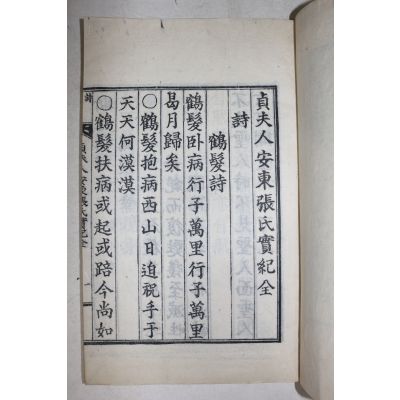 貞夫人安東張氏實紀全
詩
鶴髮詩
鶴髮卧病行子萬里行子萬里
曷月歸矣
○鶴髮抱病西山日迫祝手于
天天何漠漠
○鶴髮扶病或起或踣今尚如
貞夫人安東張氏實紀全